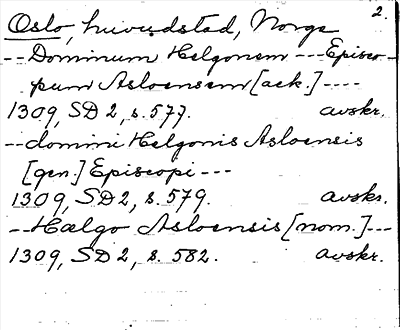 2.
Oslo, huvudstad, Norge
-- Dominum Helgonem --- Episco-
pum Asloensem [ack.] ----
1309, SD 2, s. 577. avskr.
-- domini Helgonis Asloensis
[gen.] Episcopi ---
1309, SD 2, s. 579. avskr.
-- Hælgo Asloensis [nom.] ---
1309, SD 2, s. 582. avskr.